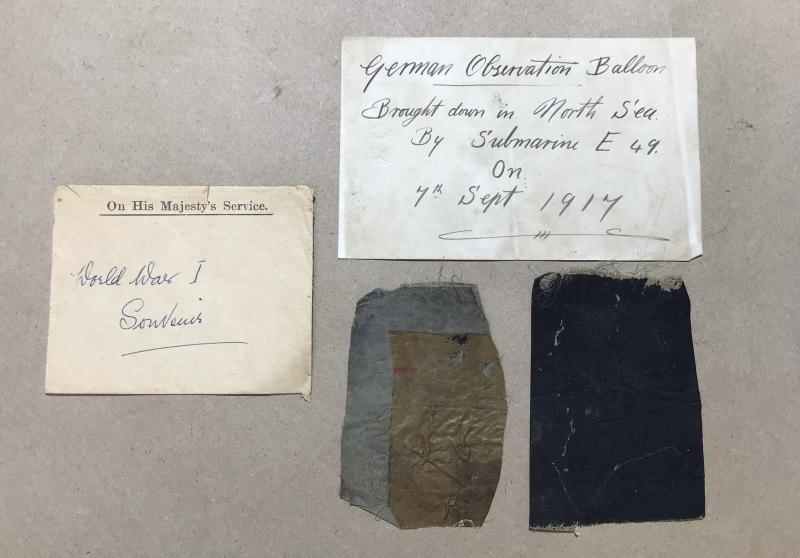 On His Majesty's Service.
World War I
Souvenir
German Observation Balloon
Brought down in North Sea.
By Submarine E 49.
On
7th Sept 1917